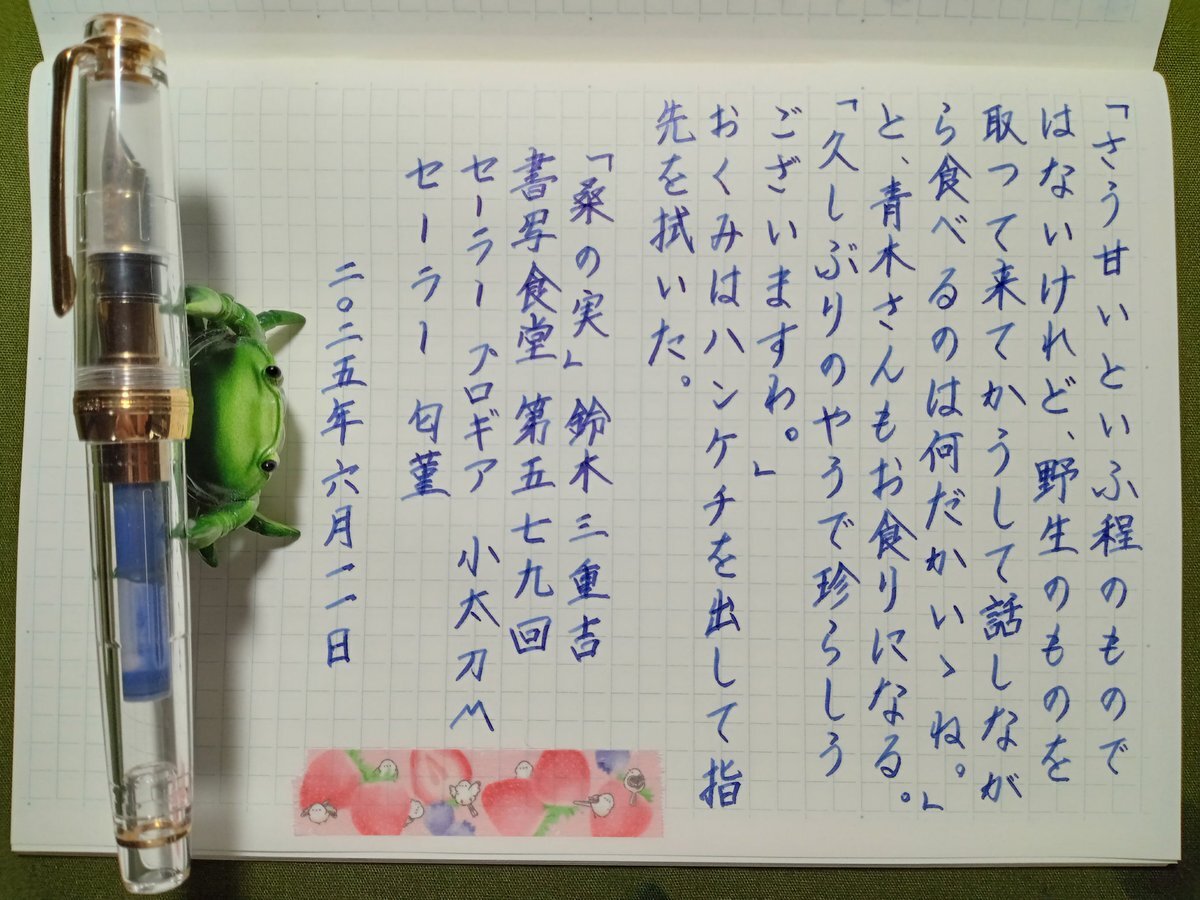 「さう甘いといふ程のもので
はないけれど、野生のものを
取つて来てかうして話しなが
ら食べるのは何だかいゝね。」
と、青木さんもお食りになる。
「久しぶりのやうで珍らしう
ございますわ。」
おくみはハンケチを出して指
先を拭いた。
「桑の実」 鈴木三重吉
書写食堂 第五七九回
セーラー プロギア 小太刀M
セーラー 匂菫
二〇二五年六月二一日